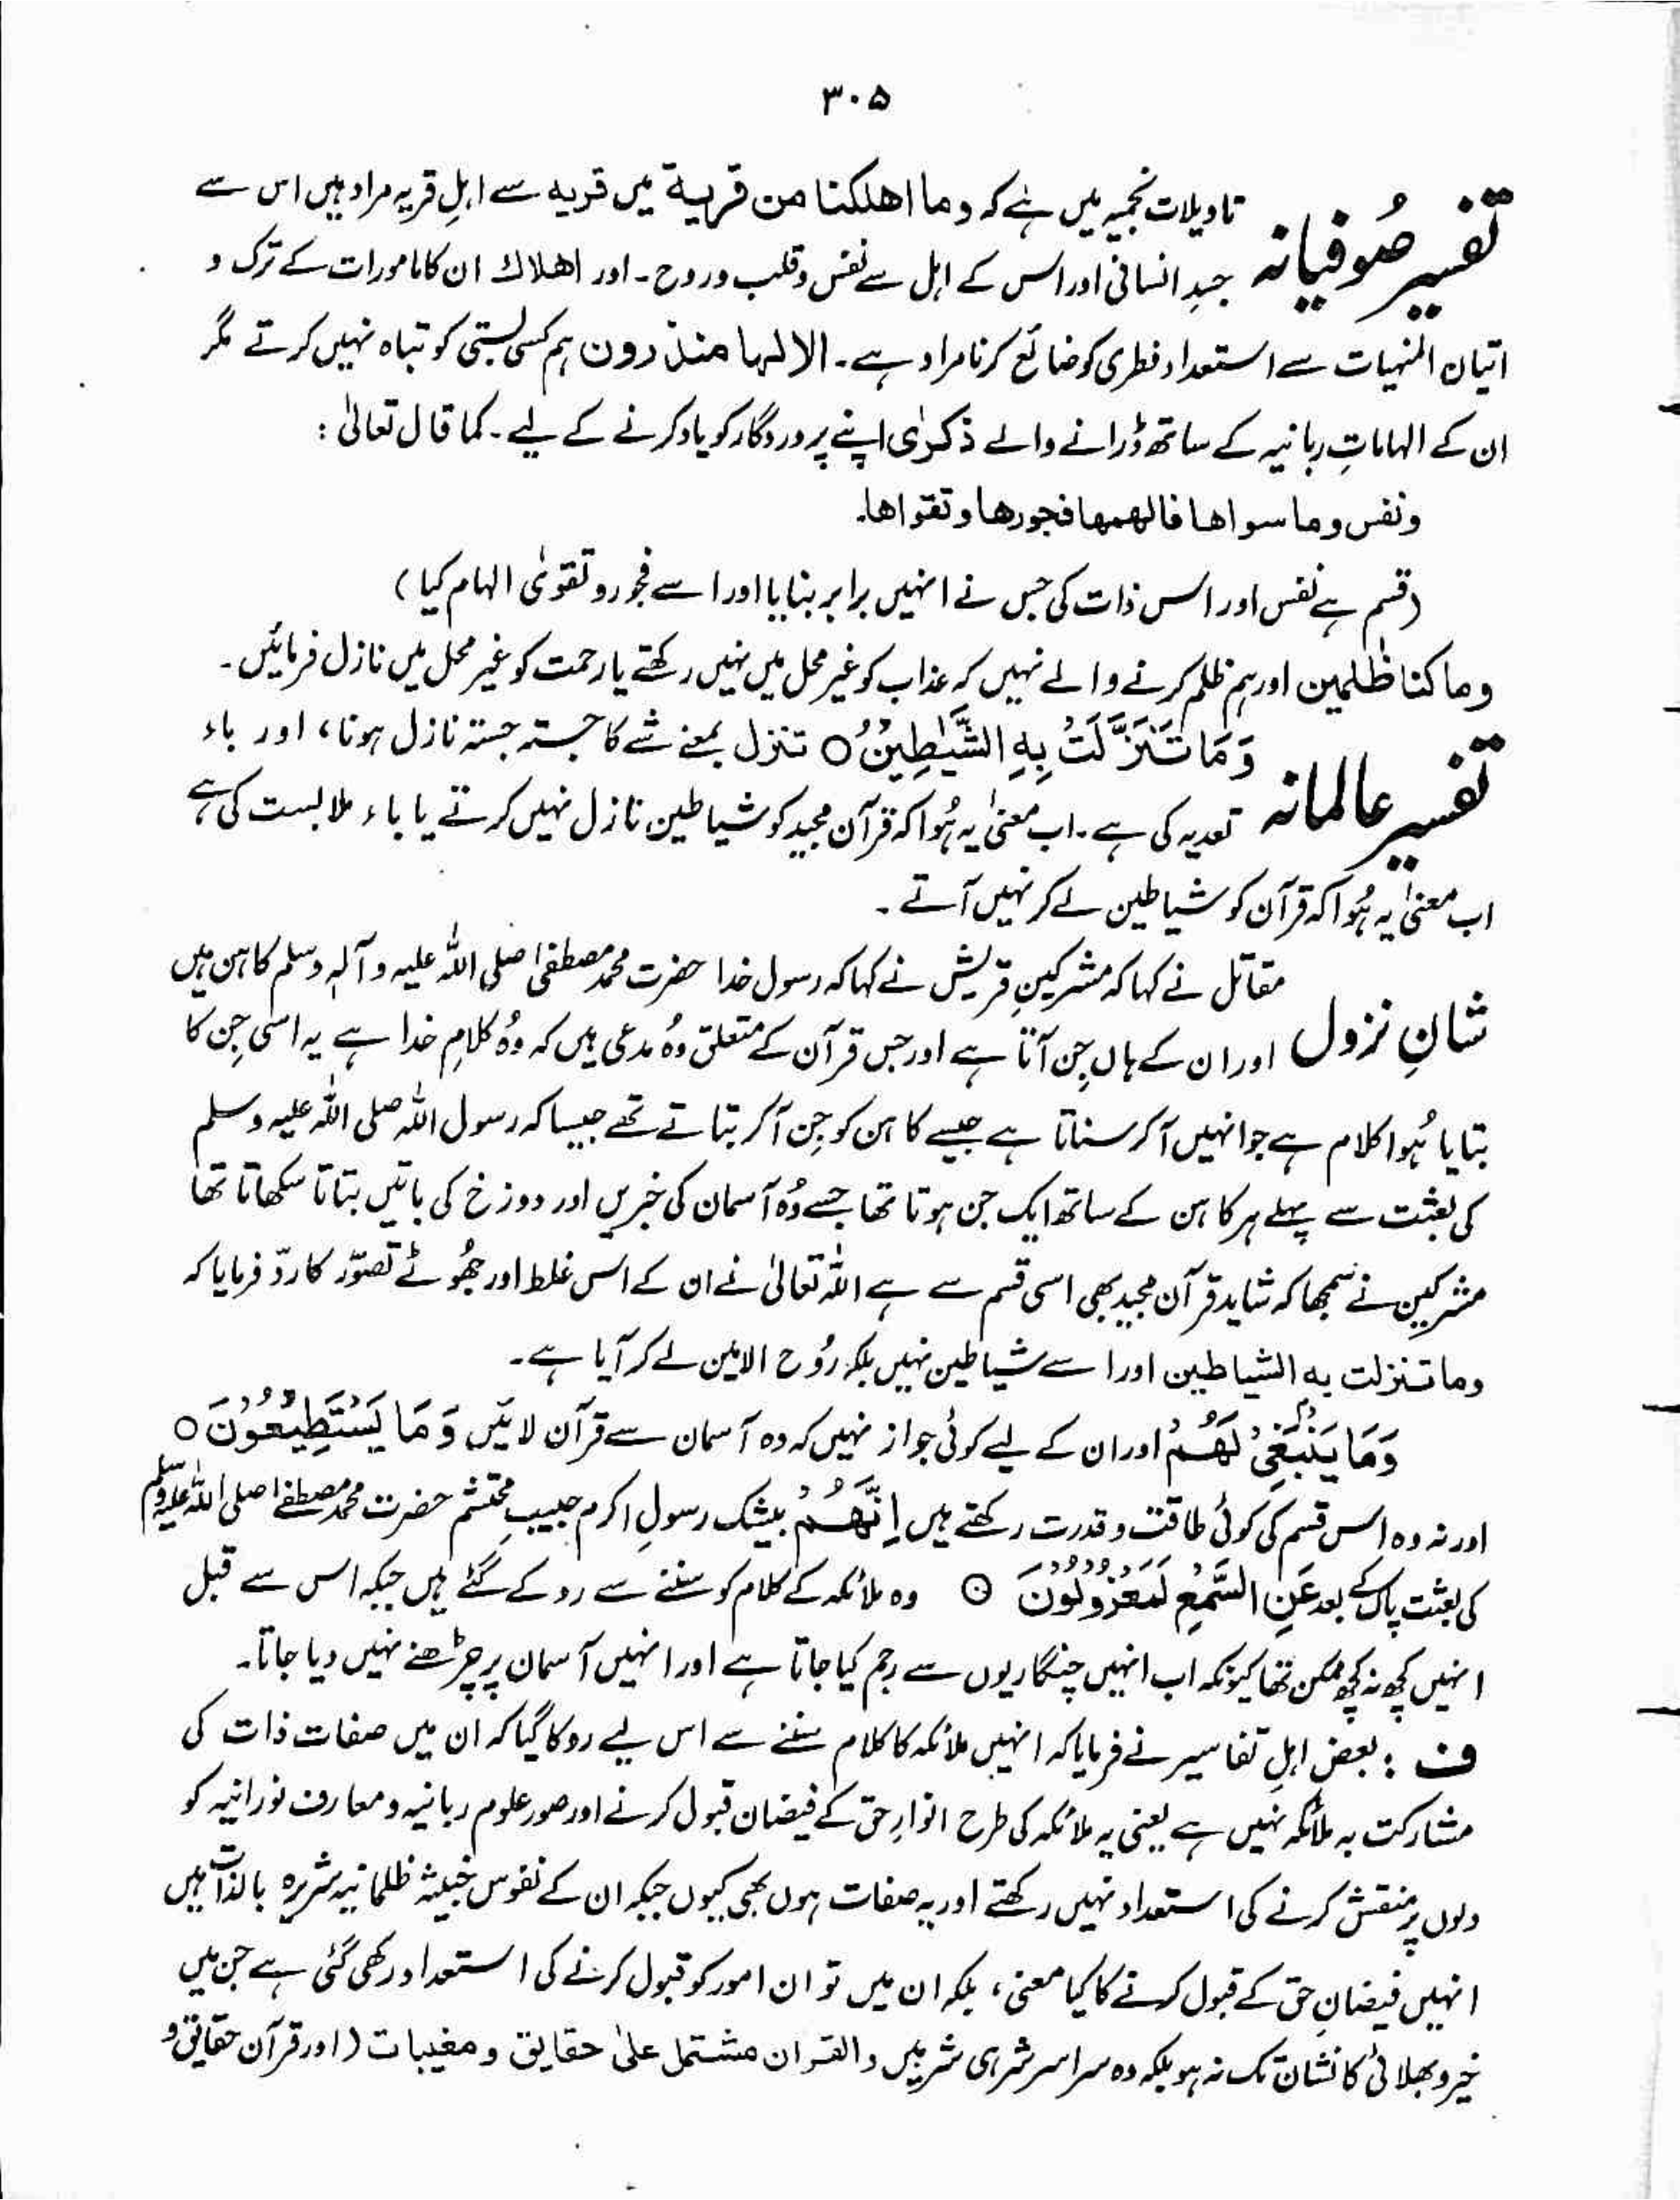 ۳۰۵
تفسیر صُوفیانہ تاویلات نجمیہ میں ہے کہ وما اھلکنا من قریۃ میں قریہ سے اہلِ قریہ مراد ہیں اس سے
جسدِ انسانی اور اس کے اہل سے نفس وقلب وروح۔ اور اھلاک ان کا مامورات کے ترک و
اتیان المنہیات سے استعداد فطری کو ضائع کرنا مراد ہے۔ الا لہا منذرون ہم کسی بستی کو تباہ نہیں کرتے مگر
ان کے الہاماتِ ربانیہ کے ساتھ ڈرانے والے ذکرٰی اپنے پروردگار کو یاد کرنے کے لیے۔ کما قال تعالیٰ :
ونفس وما سواھا فالھمھا فجورھا وتقواھا۔
(قسم ہے نفس اور اس ذات کی جس نے انہیں برابر بنایا اور اسے فجور و تقویٰ الہام کیا)
وما کنا ظٰلمین اور ہم ظلم کرنے والے نہیں کہ عذاب کو غیر محل میں نہیں رکھتے یا رحمت کو غیر محل میں نازل فرمائیں۔
تفسیر عالمانہ وَمَا تَنَزَّلَتْ بِهِ الشَّيٰطِيْنُ ○ تنزل بمعنے شے کا جستہ جستہ نازل ہونا، اور باء
تعدیہ کی ہے۔ اب معنیٰ یہ ہُوا کہ قرآن مجید کو شیاطین نازل نہیں کرتے یا باء ملابست کی ہے
اب معنیٰ یہ ہُوا کہ قرآن کو شیاطین لے کر نہیں آتے۔
شانِ نزول مقاتل نے کہا کہ مشرکینِ قریش نے کہا کہ رسول خدا حضرت محمد مصطفیٰ صلی اللہ علیہ وآلہٖ وسلم کاہن ہیں
اور ان کے ہاں جِن آتا ہے اور جس قرآن کے متعلق وُہ مدعی ہیں کہ وُہ کلامِ خدا ہے یہ اسی جِن کا
بتایا ہُوا کلام ہے جو انہیں آکر سناتا ہے جیسے کاہن کو جِن آکر بتاتے تھے جیسا کہ رسول اللہ صلی اللہ علیہ وسلم
کی بعثت سے پہلے ہر کاہن کے ساتھ ایک جن ہوتا تھا جسے وُہ آسمان کی خبریں اور دوزخ کی باتیں بتاتا سکھاتا تھا
مشرکین نے سمجھا کہ شاید قرآن مجید بھی اسی قسم سے ہے اللہ تعالیٰ نے ان کے اس غلط اور جھُوٹے تصوّر کا ردّ فرمایا کہ
وما تنزلت به الشیاطین اور اسے شیاطین نہیں بلکہ رُوح الامین لے کر آیا ہے۔
وَمَا يَنْۢبَغِيْ لَهُمْ اور ان کے لیے کوئی جواز نہیں کہ وہ آسمان سے قرآن لائیں وَمَا يَسْتَطِيْعُوْنَ ○
اور نہ وہ اس قسم کی کوئی طاقت و قدرت رکھتے ہیں اِنَّهُمْ بیشک رسولِ اکرم حبیبِ محتشم حضرت محمد مصطفےٰ صلی اللہ علیہ وسلم
کی بعثت پاک کے بعد عَنِ السَّمْعِ لَمَعْزُوْلُوْنَ ○ وہ ملائکہ کے کلام کو سننے سے روکے گئے ہیں جبکہ اس سے قبل
انہیں کچھ نہ کچھ ممکن تھا کیونکہ اب انہیں چنگاریوں سے رجم کیا جاتا ہے اور انہیں آسمان پر چڑھنے نہیں دیا جاتا۔
ف : بعض اہلِ تفاسیر نے فرمایا کہ انہیں ملائکہ کا کلام سننے سے اس لیے روکا گیا کہ ان میں صفات ذات کی
مشارکت بہ ملائکہ نہیں ہے یعنی یہ ملائکہ کی طرح انوارِ حق کے فیضان قبول کرنے اور صور علوم ربانیہ و معارف نورانیہ کو
دلوں پر منقش کرنے کی استعداد نہیں رکھتے اور یہ صفات ہوں بھی کیوں جبکہ ان کے نفوس خبیثہ ظلمانیہ شریرہ بالذات ہیں
انہیں فیضانِ حق کے قبول کرنے کا کیا معنی، بلکہ ان میں تو ان امور کو قبول کرنے کی استعداد رکھی گئی ہے جن میں
خیر و بھلائی کا نشان تک نہ ہو بلکہ وہ سراسر شر ہی شر ہیں والقرآن مشتمل علیٰ حقایق و مغیبات (اور قرآن حقایق و